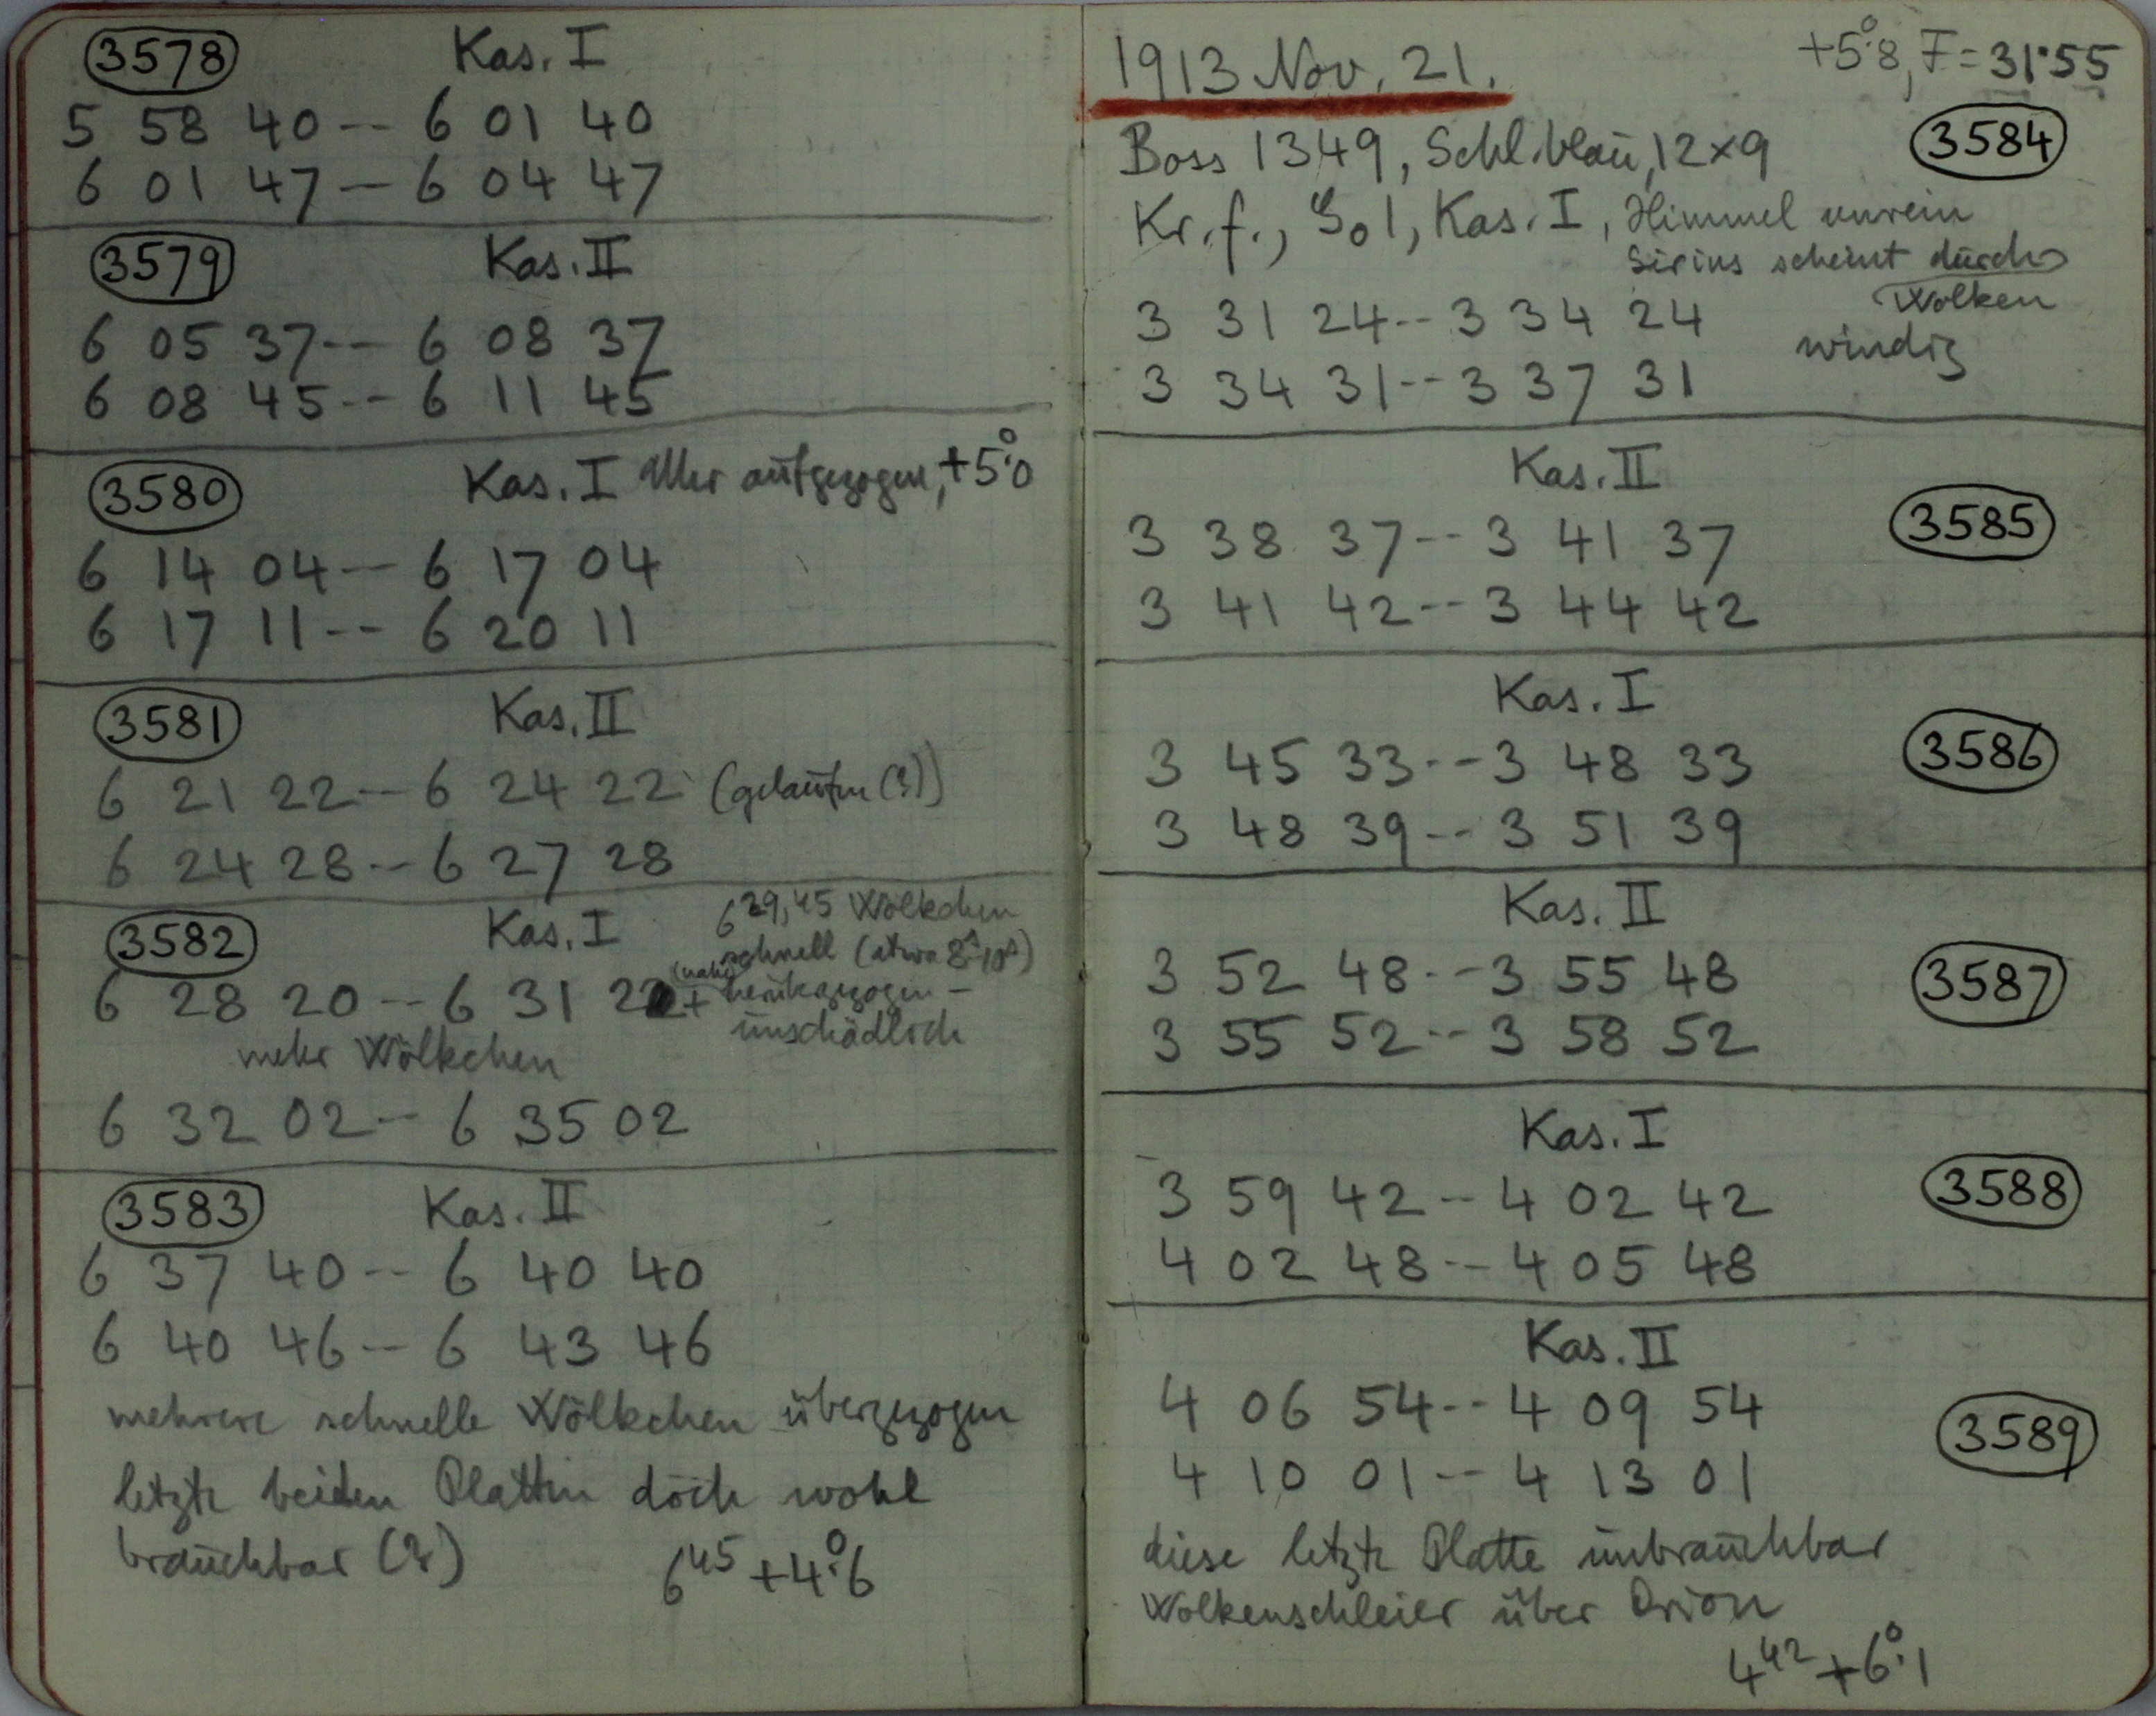 3578 Kas. I
5 58 40 -- 6 01 40
6 01 47 -- 6 04 47
3579 Kas. II
6 05 37 -- 6 08 37
6 08 45 -- 6 11 45
3580 Kas. I Uhr aufgezogen, +5°.0
6 14 04 -- 6 17 04
6 17 11 -- 6 20 11
3581 Kas. II
6 21 22 -- 6 24 22 (gelaufen (?))
6 24 28 -- 6 27 28
3582 Kas. I 6 29,45 Wölkchen
schnell (etwa 8s-10s)
6 28 20 -- 6 31 22 +
unschädlich
mehr Wölkchen
6 32 02 -- 6 35 02
3583 Kas. II
6 37 40 -- 6 40 40
6 40 46 -- 6 43 46
mehrere schnelle Wölkchen übergezogen
letzte beiden Platten doch wohl
brauchbar (?)
6 45 +4°.6
+5°.8, F = 31.55
1913 Nov. 21.
Boss 1349, Schl. blau, 12×9 3584
Kr. f., Kas. I, Himmel unrein
Sirius scheint durch
Wolken
3 31 24 -- 3 34 24
windig
3 34 31 -- 3 37 31
Kas. II
3585
3 38 37 -- 3 41 37
3 41 42 -- 3 44 42
Kas. I
3586
3 45 33 -- 3 48 33
3 48 39 -- 3 51 39
Kas. II
3587
3 52 48 -- 3 55 48
3 55 52 -- 3 58 52
Kas. I
3588
3 59 42 -- 4 02 42
4 02 48 -- 4 05 48
Kas. II
4 06 54 -- 4 09 54
3589
4 10 01 -- 4 13 01
diese letzte Platte unbrauchbar
Wolkenschleier über Orion
4 42 +6°.1